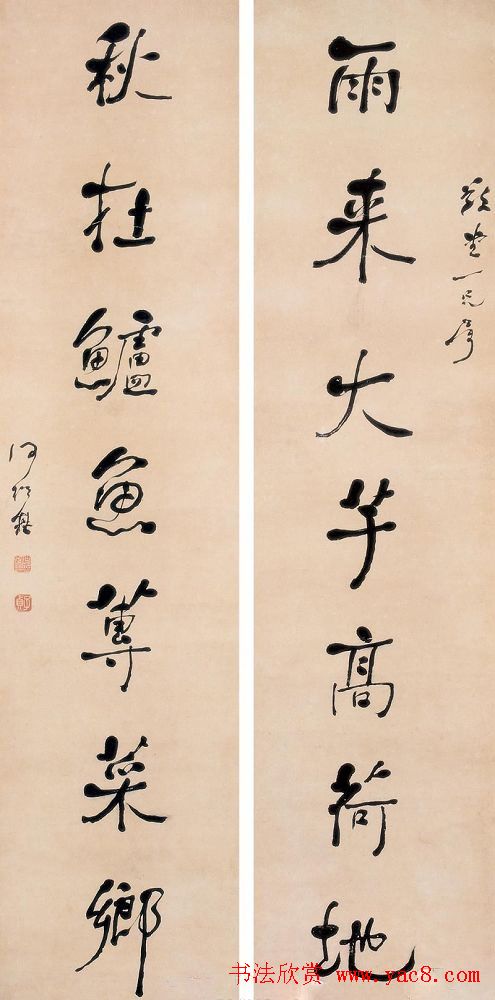 雨来大芋高荷地
秋在鱸魚蓴菜鄉
何紹基
书法欣赏 www.yac8.com